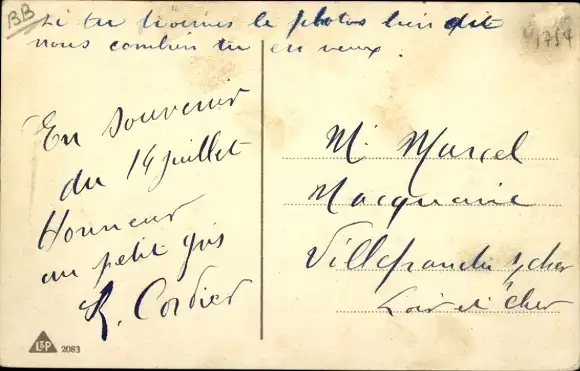 BB
Si tu trouves le photos bien dit
nous combien tu en veux.
1754
En souvenir
du 14 juillet
Honneur
au petit gris
R. Cordier
M. Marcel
Macquaire
Villefranche s/cher
Loir et Cher
L&P 2083